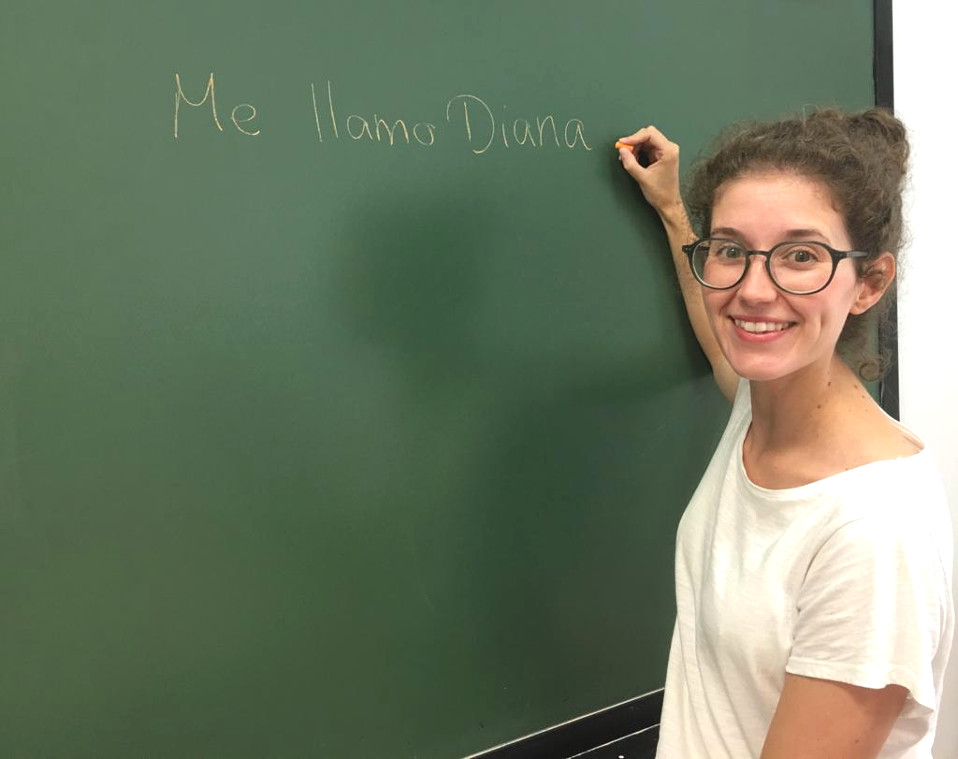 Me llamo Diana